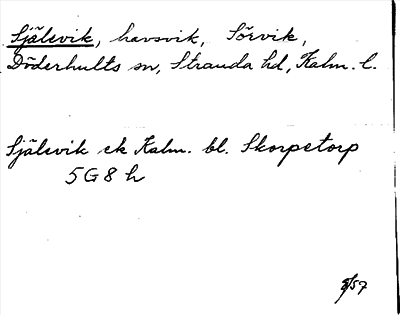 Själsvik, havsvik, Sörvik,
Döderhults sn, Stranda hd, Kalm. l.
Själsvik ek Kalm. bl. Skorpetorp
5G8h